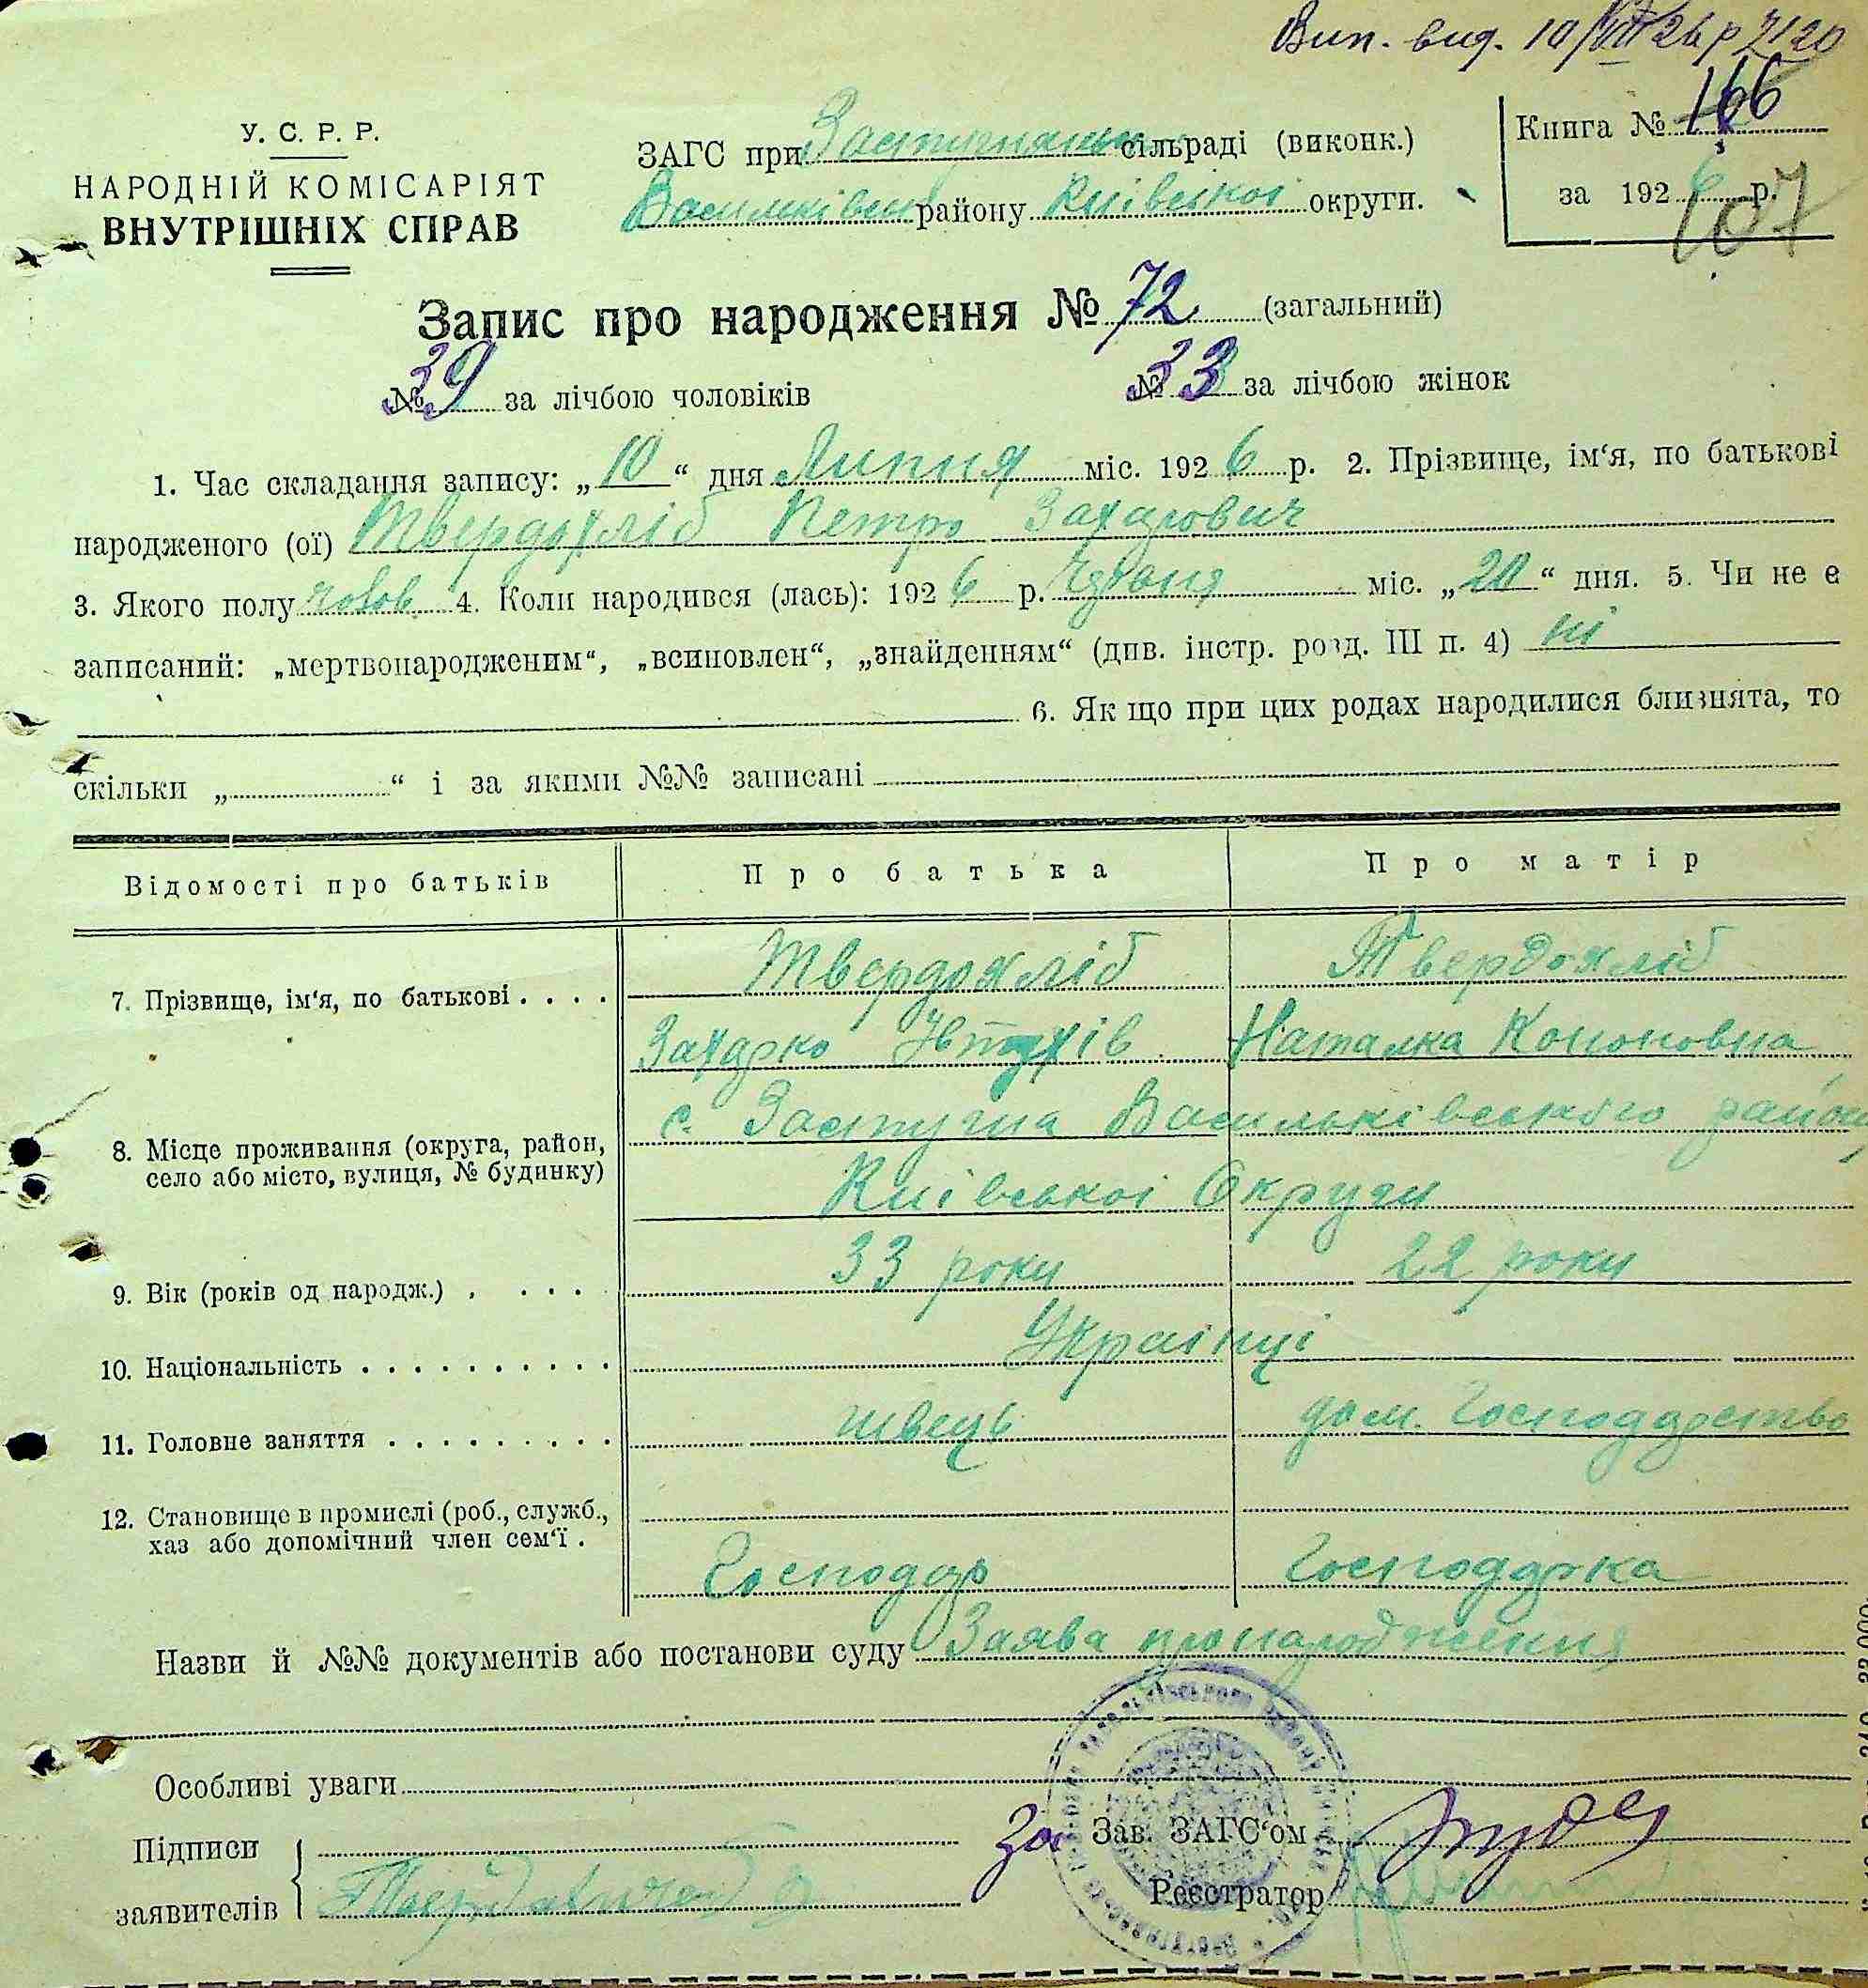 Вип. вид. 10/VII 26 р
У. С. Р. Р.
НАРОДНІЙ КОМІСАРІЯТ
ВНУТРІШНІХ СПРАВ
ЗАГС при сільраді (виконк.)
Васильківськ району Київської округи.
Книга № 166
за 1926 р.
107
Запис про народження № 72 (загальний)
№ 39 за лічбою чоловіків № 33 за лічбою жінок
1. Час складання запису: „10“ дня Липня міс. 1926 р. 2. Прізвище, ім‘я, по батькові
народженого (ої) Твердохліб Петро Захарович
3. Якого полу чолов 4. Коли народився (лась): 1926 р. Червня міс. „20“ дня. 5. Чи не є
записаний: „мертвонародженим“, „всиновлен“, „знайденням“ (див. інстр. розд. III п. 4) ні
6. Як що при цих родах народилися близнята, то
скільки „ “ і за якими №№ записані
Відомості про батьків Про батька Про матір
7. Прізвище, ім‘я, по батькові . . . . Твердохліб Твердохліб
Захарко Наталка Кононовна
8. Місце проживання (округа, район, с. Застугна Васильківського району
село або місто, вулиця, № будинку)
Київської Округи
9. Вік (років од народж.) . . . . 33 роки 22 роки
10. Національність . . . . . . . . . . Українці
11. Головне заняття . . . . . . . . . швець дом. Господарство
12. Становище в промислі (роб., служб.,
хаз або допомічний член сем‘ї .
Господар Господарка
Назви й №№ документів або постанови суду Заява про народження
Особливі уваги
Підписи
заявителів
За Зав. ЗАГС‘ом
Реєстратор